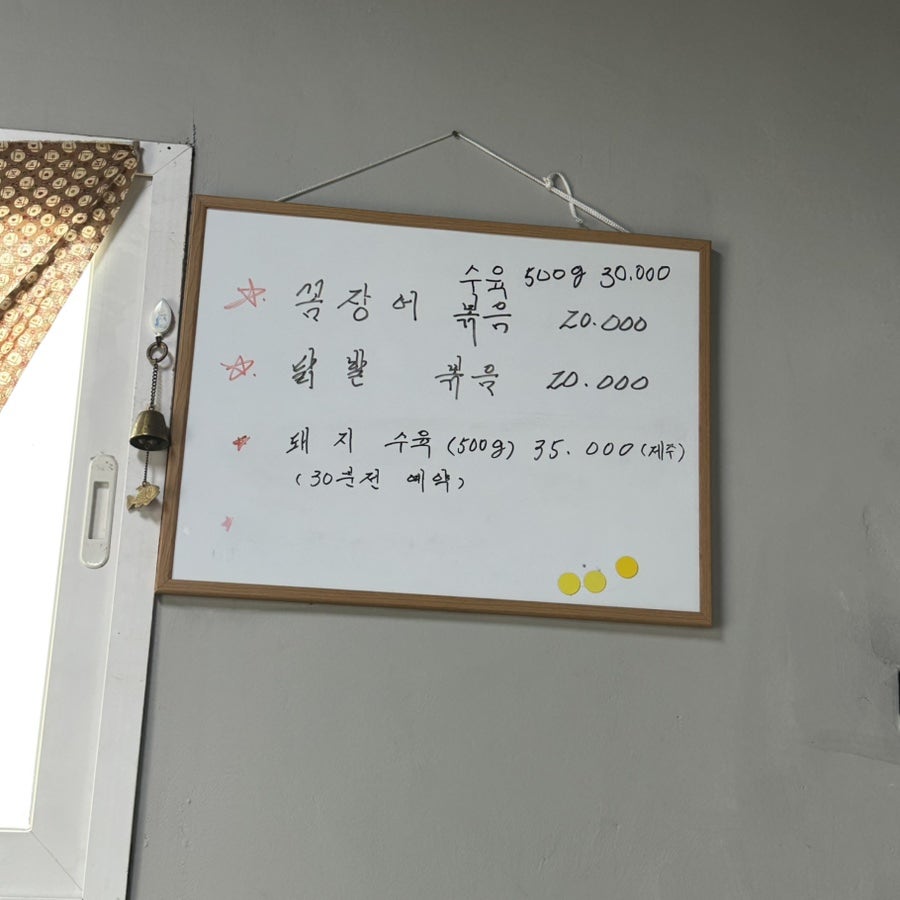 수육 500g 30.000
☆. 꼼장어 볶음 20.000
☆. 닭발 볶음 20.000
★ 돼지 수육 (500g) 35.000 (제주)
(30분전 예약)
★